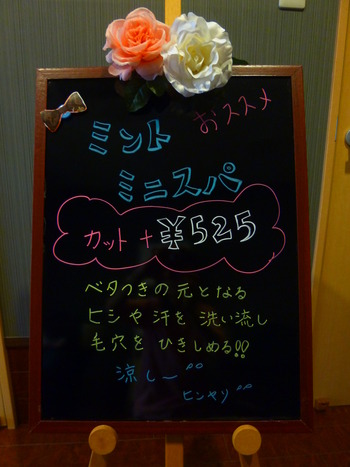 おススメ
ミント
ミニスパ
カット + ¥525
ベタつきの元となる
ヒシや汗を洗い流し
毛穴をひきしめる!!
涼し〜
ヒンヤリ